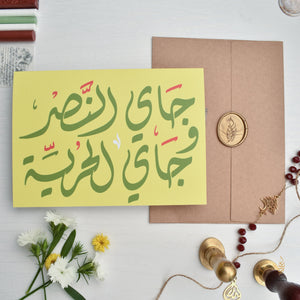 جَاي النَّصْر
وجَاي الحُرِّيَّة